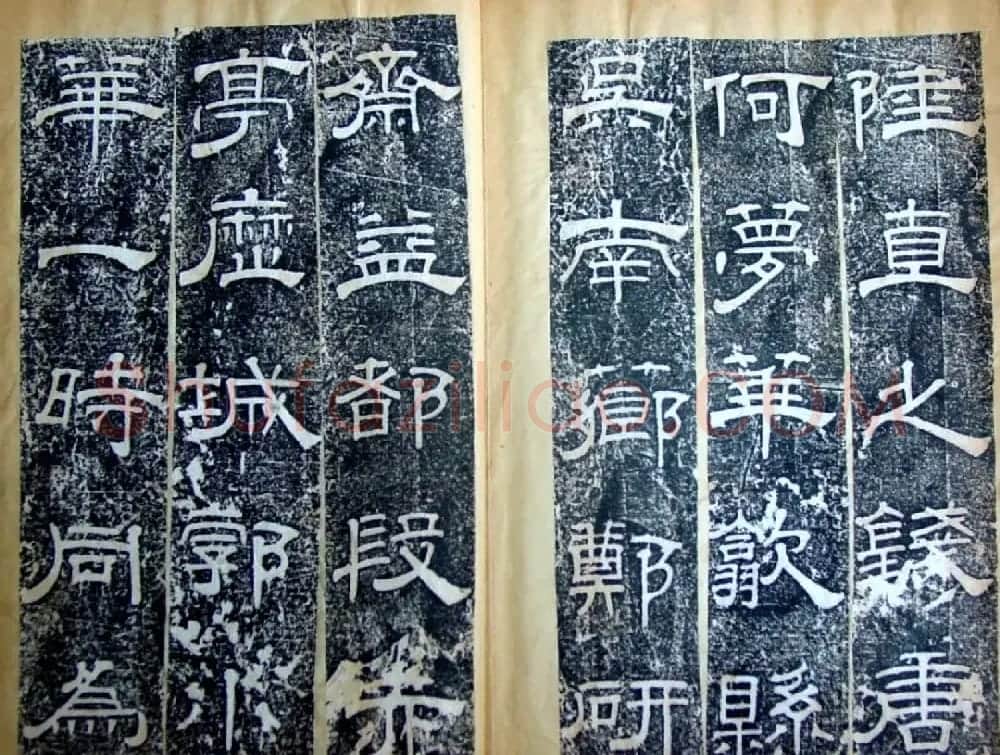 陸直之錢唐
何夢華歙縣
吳南薌鄭研
齋益都段赤
亭歷城郭小
華一時同為
shufaziliao.COM